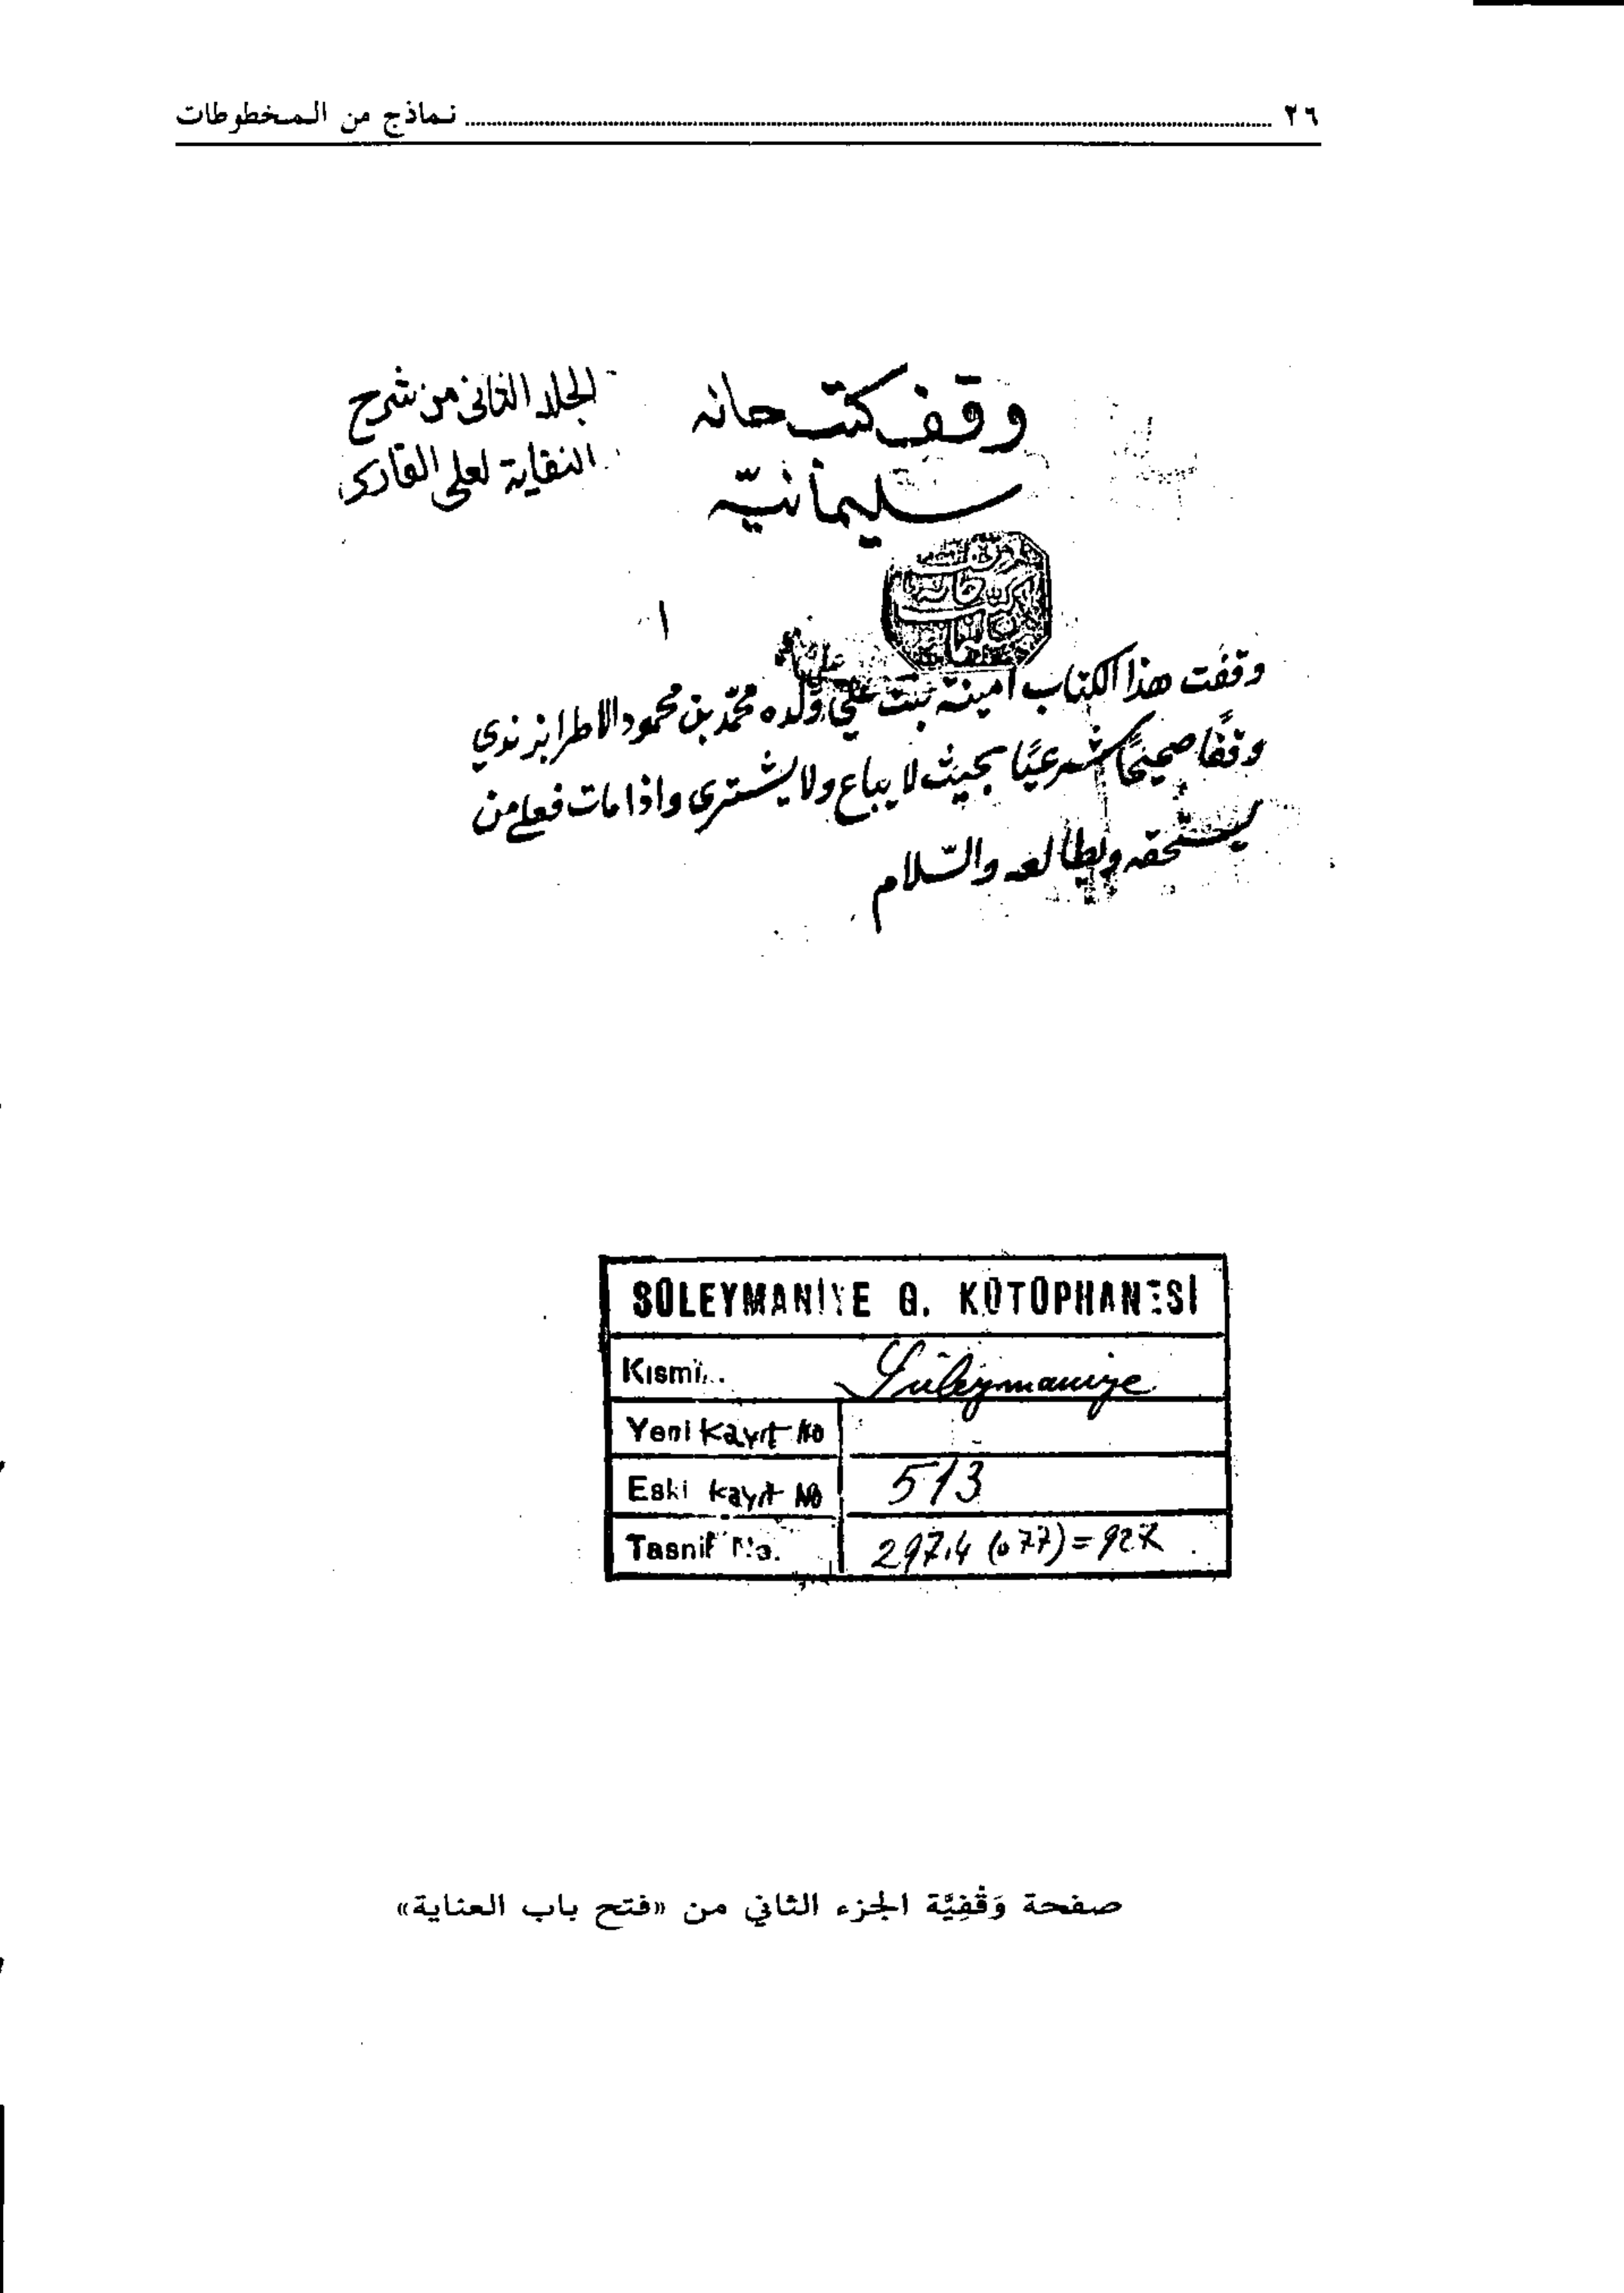 ٢٦ ........ نماذج من المخطوطات
وقف كتبخانه
سليمانيّه
الجلد الثانى من شرح
النقاية لعلى القارى
١
وقفت هذا الكتاب امينة بنت علي ولده محمّد بن محمود الاطرابزندي
وقفًا صحيحًا شرعيًا بحيث لا يباع ولا يشترى واذا مات فعلى من
يستحقه ويطالعه والسّلام
SÜLEYMANİYE G. KÜTÜPHANESİ
Kısmı Süleymaniye
Yeni Kayıt No
Eski Kayıt No 513
Tasnif No. 297.4 (077)=927
صفحة وَقْفِيَّة الجزء الثاني من «فتح باب العناية»